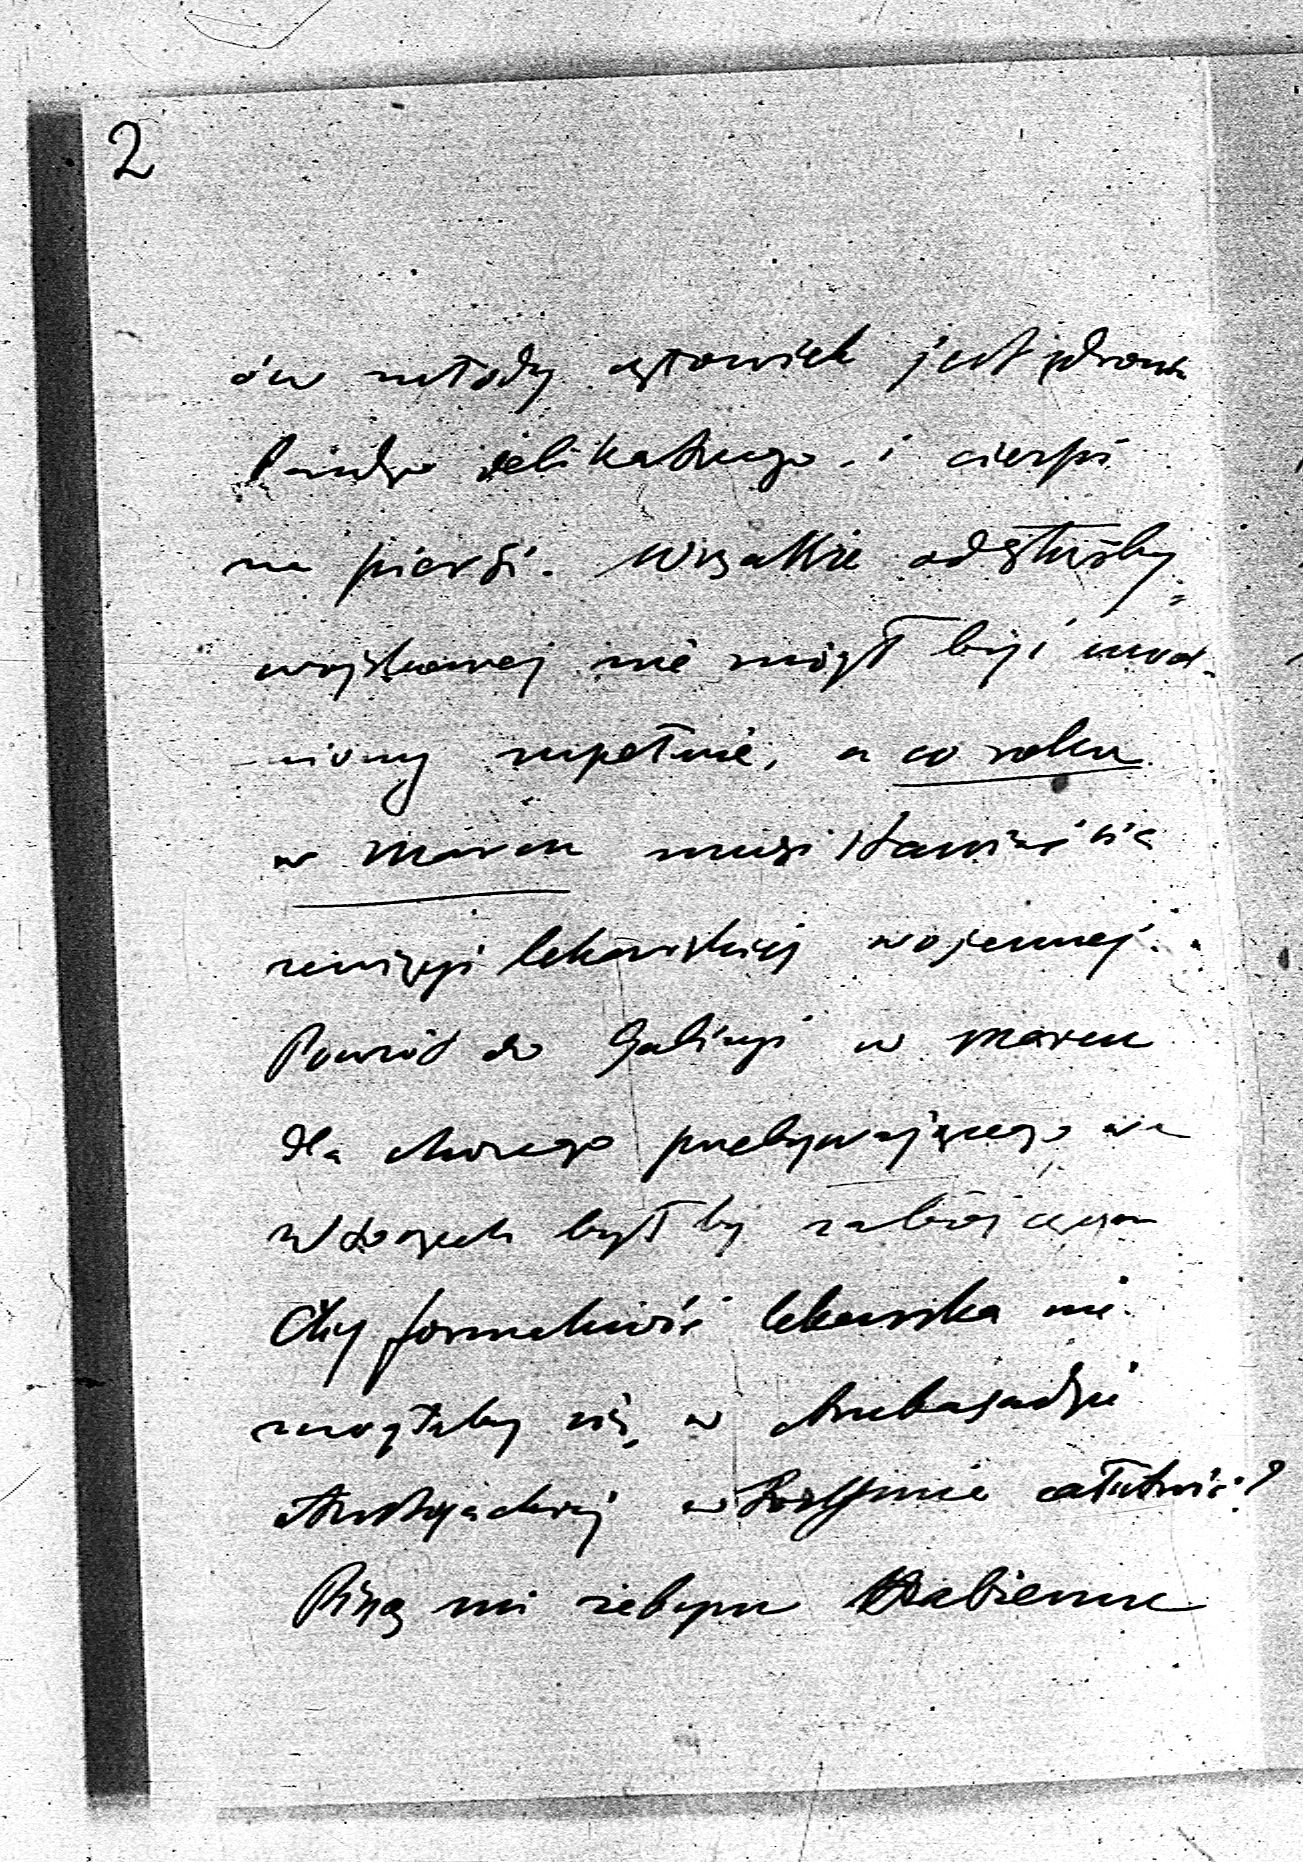 2
ów młody człowiek jest zdrowia
bardzo delikatnego i cierpi
na piersi. Wszakże od służby
wojskowej nie mógł być uwol-
niony zupełnie, a co roku
w marcu musi stawiać się
rewizyi lekarskiej wojennej.
Powrót do Galicyi w marcu
dla chorego przebywającego we
Włoszech byłby zabójczym
Czy formalność lekarska nie
mogłaby się w Ambasadzie
Austryackiej w Rzymie załatwić?
Piszą mi żebym Hrabiemu